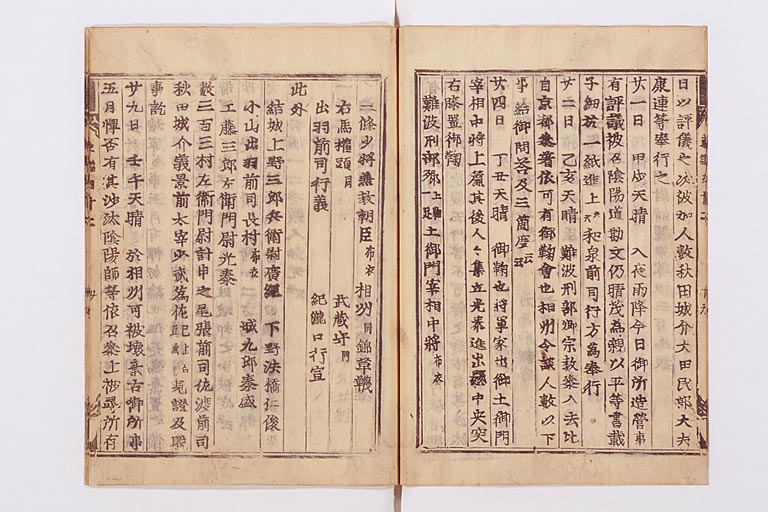 日以評儀之次被加人数秋田城介大田民部大夫
康連等奉行之
廿一日 甲戌天晴 入夜雨降今日御所造営事
有評議被召陰陽道勘文仍晴茂為親以平等書載
子細於一紙進上 和泉前司行方為奉行
廿二日 乙亥天晴 難波刑部卿宗教参入去比
自京都参著依可有御鞠會也相州令談人数以下
事 給御問答及三箇度云云
廿四日 丁丑天晴 御鞠也将軍家出御土御門
宰相中将上簾其後人々集立光泰進出 中央突
右膝置御鞠
難波刑部卿 上鞠一足 土御門宰相中将 布衣
二條少将兼教朝臣 布衣 相州 同 錦革韈
右馬権頭 同 武蔵守 同
出羽前司行義 紀瀧口行宣
此外
結城上野三郎兵衛尉廣綱 下野法橋仁俊
小山出羽前司長村 布衣 城九郎泰盛
工藤三郎右衛門尉光泰
数三百三村左衛門尉計申之尾張前司佐渡前司
秋田城介義景前太宰少貳為佐 見證及歌
事訖
廿九日 壬午天晴 於相州可被壊棄古御所事
五月憚否有其沙汰陰陽師等依召参上抄尋所有